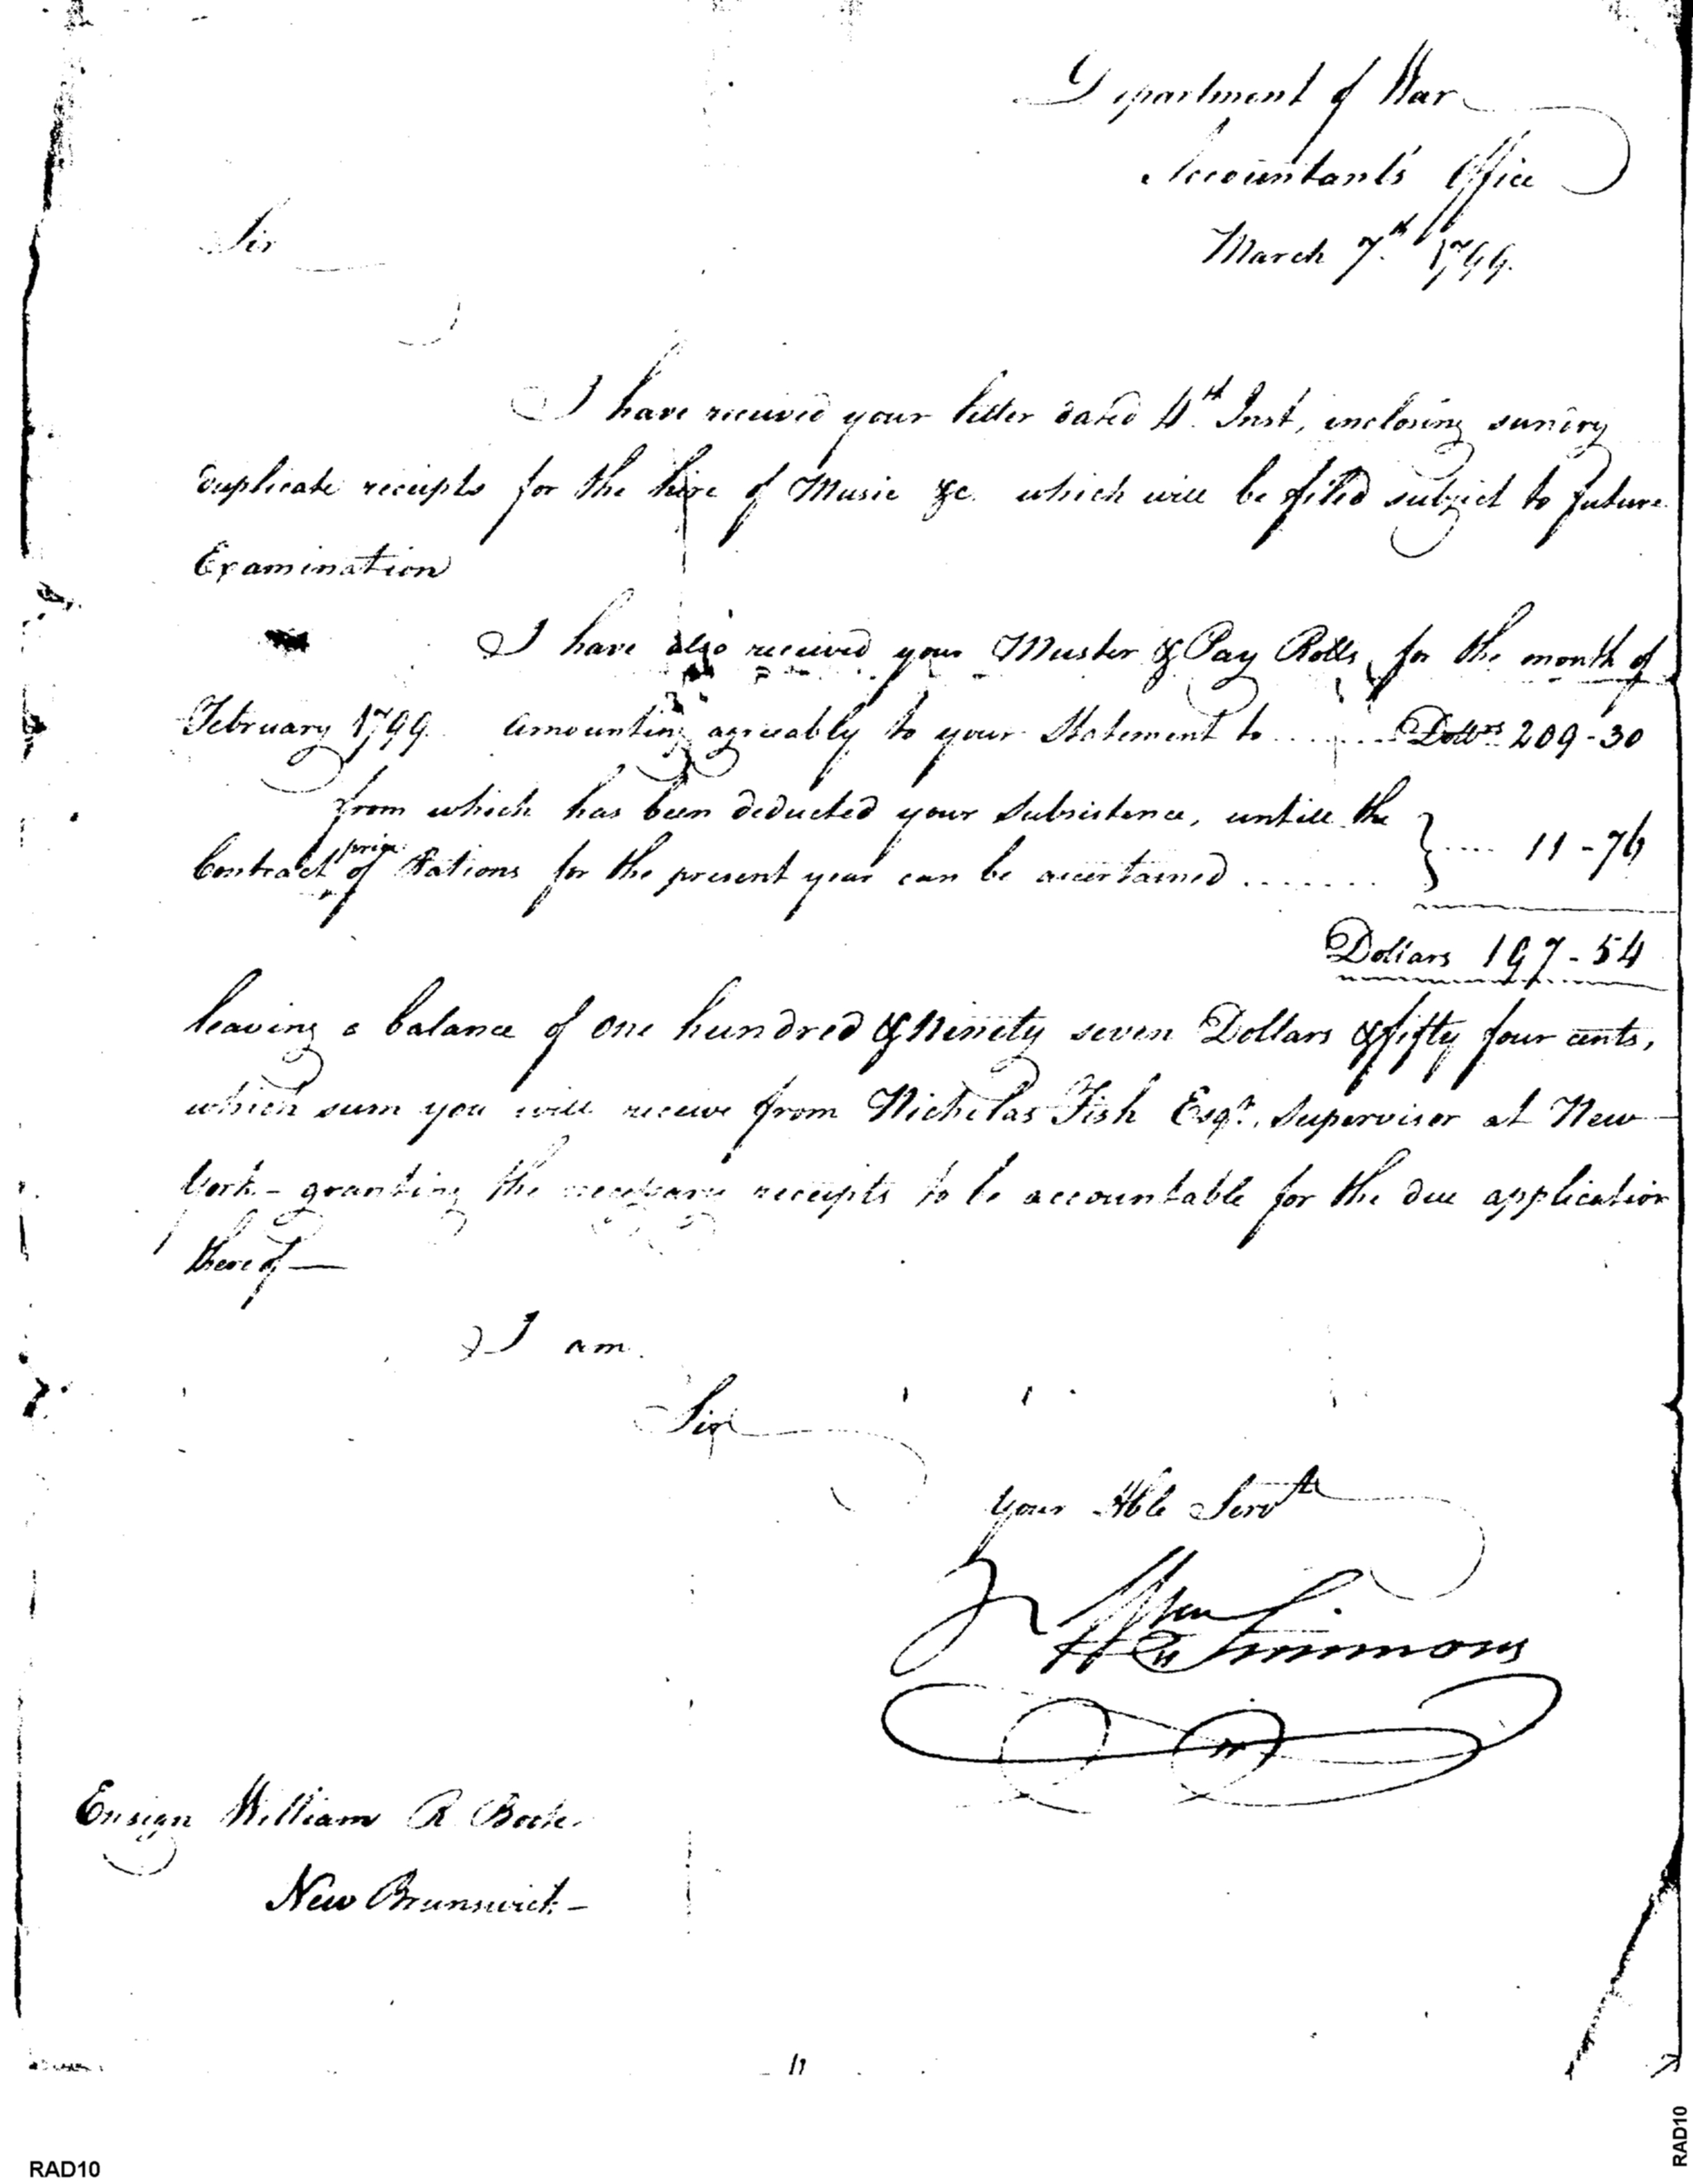 Department of War
Accountant's Office
Sir
March 7th 1799.
I have received your letter dated 4th Inst, inclosing sundry
duplicate receipts for the hire of Music &c. which will be filed subject to future
Examination
I have also received your Muster & Pay Rolls, for the month of
February 1799. Amounting agreeably to your Statement to ....... Dollrs 209-30
from which has been deducted your Subsistence, untill the
Contract price of Rations for the present year can be ascertained ....... } .... 11-76
Dollars 197-54
leaving a balance of one hundred & Ninety seven Dollars & fifty four cents,
which sum you will receive from Nicholas Fish Esqr. Supervisor at New
York - granting the necessary receipts to be accountable for the due application
thereof —
I am
Sir
Your Hble Servt
Wm Simmons
Ensign William R
New Brunswick -
11
RAD10
RAD10